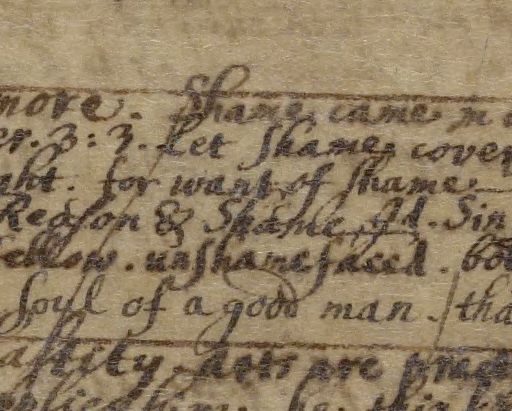 more. Shame came in
er. 3:3. Let shame cover
ght. for want of shame
Reason & Shame fd. Sin
fellow. unshamefaced. bo
soul of a good man. tha
astity. acts are